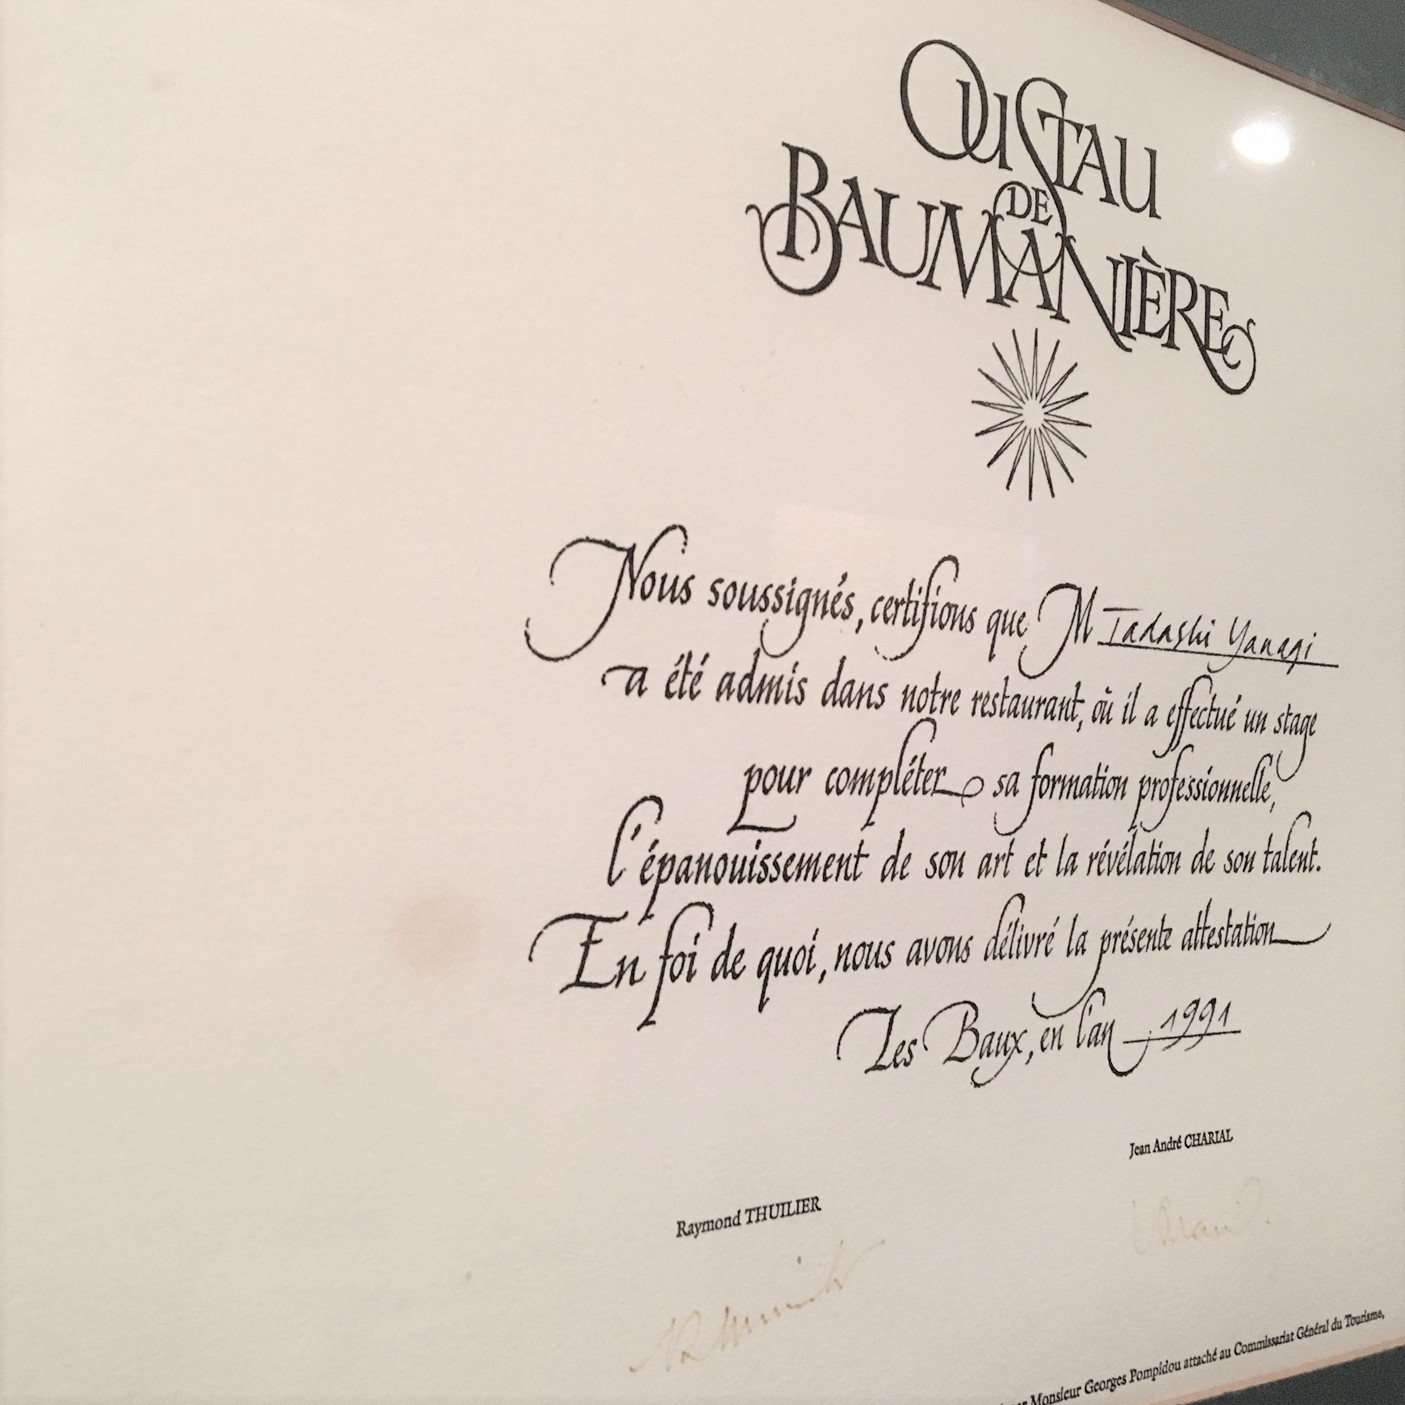 OUSTAU
DE
BAUMANIÈRE
Nous soussignés, certifions que M Tadashi Yanagi
a été admis dans notre restaurant, où il a effectué un stage
pour compléter sa formation professionnelle,
l'épanouissement de son art et la révélation de son talent.
En foi de quoi, nous avons délivré la présente attestation
Les Baux, en l'an 1991
Jean André CHARIAL
Raymond THUILIER
Monsieur Georges Pompidou attaché au Commissariat Général du Tourisme,